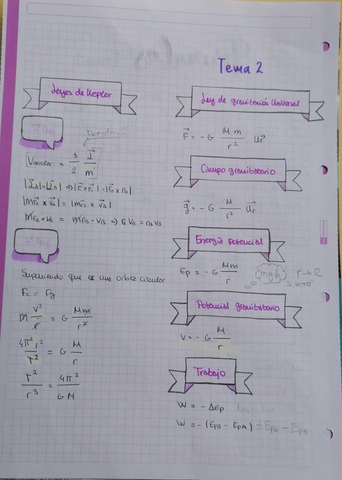 Tema 2
Leyes de Kepler
V areolar = 1/2 L/m
|L⃗A| = |L⃗B| ⇒ |r⃗ × PA| = |r⃗ × PB|
|m r⃗A × v⃗A| = |m r⃗B × v⃗B|
m rA · vA = m rB · vB ⇒ rA vA = rB vB
Suponiendo que es una orbita circular
Fc = Fg
m v²/r = G Mm/r²
4π² r²/T² = G M/r
T²/r³ = 4π²/GM
Ley de gravitación Universal
F⃗ = - G M·m/r² u⃗r
Campo gravitatorio
g⃗ = - G M/r² u⃗r
Energía potencial
Ep = - G Mm/r
Potencial gravitatorio
V = - G M/r
Trabajo
W = - ΔEp
W = - (EpB - EpA) = EpA - EpB